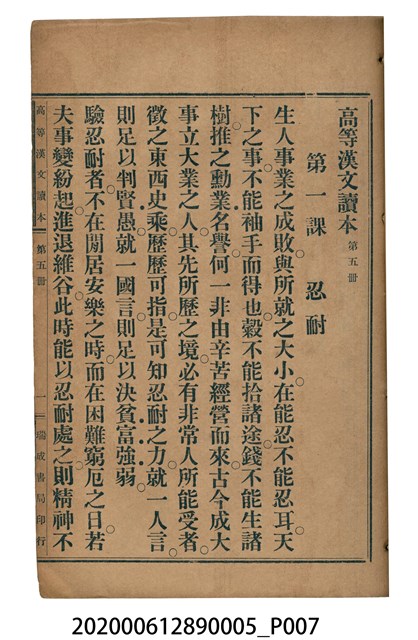 高等漢文讀本 第五冊
第一課 忍耐
生人事業之成敗與所就之大小在能忍不能忍耳天
下之事不能袖手而得也穀不能拾諸途錢不能生諸
樹推之勳業名譽何一非由辛苦經營而來古今成大
事立大業之人其先所歷之境必有非常人所能受者
徵之東西史乘歷歷可指是可知忍耐之力就一人言
則足以判賢愚就一國言則足以決貧富強弱
驗忍耐者不在閒居安樂之時而在困難窮厄之日若
夫事變紛起進退維谷此時能以忍耐處之則精神不
高等漢文讀本 第五冊 一 瑞成書局印行
202000612890005_P007